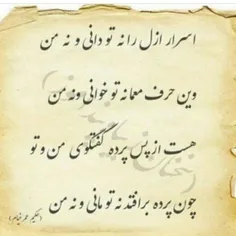 اسرار ازل را نه تو دانی و نه من
وین حرف معما نه تو خوانی و نه من
هست از پس پرده گفتگوی من و تو
چون پرده بر افتد نه تو مانی و نه من
(حکیم عمر خیام)